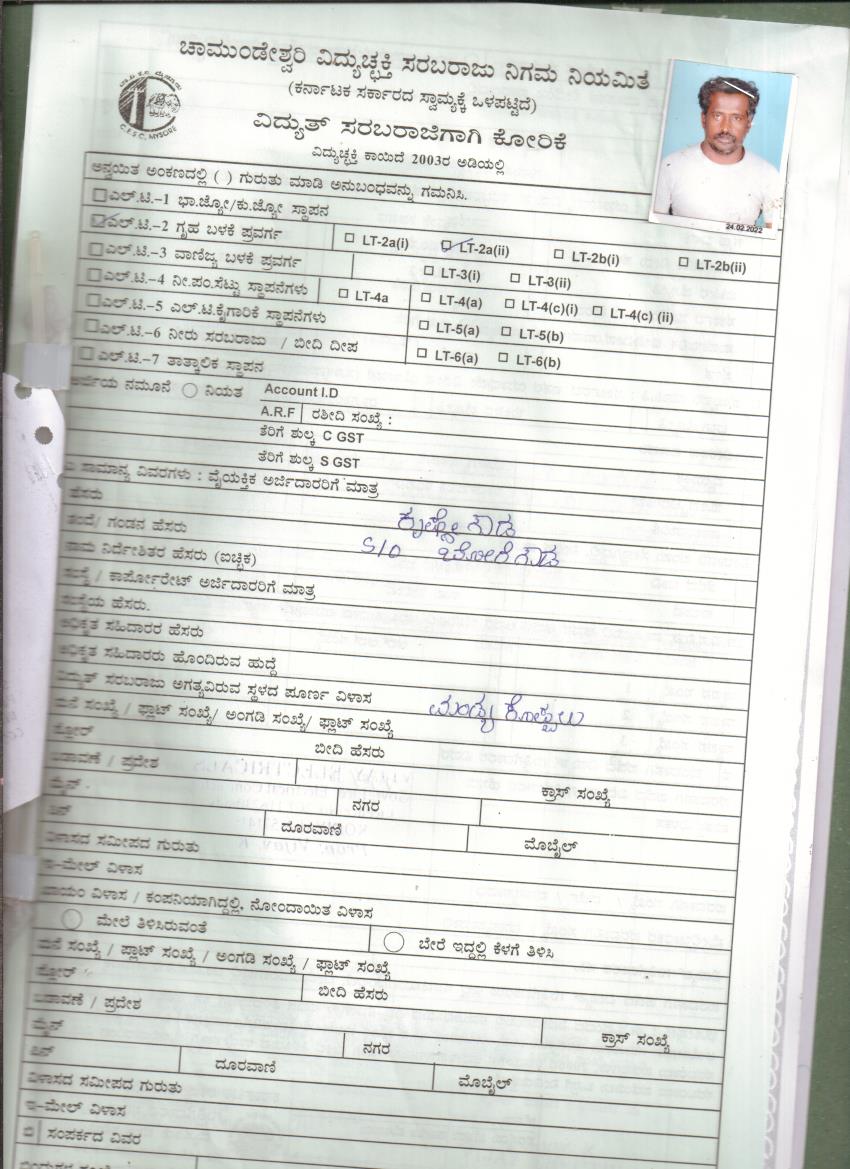 ಚಾಮುಂಡೇಶ್ವರಿ ವಿದ್ಯುಚ್ಛಕ್ತಿ ಸರಬರಾಜು ನಿಗಮ ನಿಯಮಿತ
(ಕರ್ನಾಟಕ ಸರ್ಕಾರದ ಸ್ವಾಮ್ಯಕ್ಕೆ ಒಳಪಟ್ಟಿದೆ)
C.E.S.C, MYSORE
ವಿದ್ಯುತ್ ಸರಬರಾಜಿಗಾಗಿ ಕೋರಿಕೆ
ವಿದ್ಯುಚ್ಛಕ್ತಿ ಕಾಯಿದೆ 2003ರ ಅಡಿಯಲ್ಲಿ
24.02.2022
ಅನ್ವಯಿತ ಅಂಕಣದಲ್ಲಿ ( ) ಗುರುತು ಮಾಡಿ ಅನುಬಂಧವನ್ನು ಗಮನಿಸಿ.
ಎಲ್.ಟಿ.-1 ಭಾ.ಜ್ಯೋ/ಕು.ಜ್ಯೋ ಸ್ಥಾಪನ
ಎಲ್.ಟಿ.-2 ಗೃಹ ಬಳಕೆ ಪ್ರವರ್ಗ LT-2a(i) LT-2a(ii) LT-2b(i) LT-2b(ii)
ಎಲ್.ಟಿ.-3 ವಾಣಿಜ್ಯ ಬಳಕೆ ಪ್ರವರ್ಗ LT-3(i) LT-3(ii)
ಎಲ್.ಟಿ.-4 ನೀ.ಪಂ.ಸೆಟ್ಟು ಸ್ಥಾಪನೆಗಳು LT-4a LT-4(a) LT-4(c)(i) LT-4(c) (ii)
ಎಲ್.ಟಿ.-5 ಎಲ್.ಟಿ.ಕೈಗಾರಿಕೆ ಸ್ಥಾಪನೆಗಳು LT-5(a) LT-5(b)
ಎಲ್.ಟಿ.-6 ನೀರು ಸರಬರಾಜು / ಬೀದಿ ದೀಪ LT-6(a) LT-6(b)
ಎಲ್.ಟಿ.-7 ತಾತ್ಕಾಲಿಕ ಸ್ಥಾಪನ
ಅರ್ಜಿಯ ನಮೂನೆ ನಿಯತ Account I.D
A.R.F ರಶೀದಿ ಸಂಖ್ಯೆ :
ತೆರಿಗೆ ಶುಲ್ಕ C GST
ತೆರಿಗೆ ಶುಲ್ಕ S GST
ಎ ಸಾಮಾನ್ಯ ವಿವರಗಳು : ವೈಯಕ್ತಿಕ ಅರ್ಜಿದಾರರಿಗೆ ಮಾತ್ರ
ಹೆಸರು ಕೃಷ್ಣೇಗೌಡ
ತಂದೆ/ ಗಂಡನ ಹೆಸರು S/O
ನಾಮ ನಿರ್ದೇಶಿತರ ಹೆಸರು (ಐಚ್ಛಿಕ)
ಸಂಸ್ಥೆ / ಕಾರ್ಪೋರೇಟ್ ಅರ್ಜಿದಾರರಿಗೆ ಮಾತ್ರ
ಸಂಸ್ಥೆಯ ಹೆಸರು.
ಅಧಿಕೃತ ಸಹಿದಾರರ ಹೆಸರು
ಅಧಿಕೃತ ಸಹಿದಾರರು ಹೊಂದಿರುವ ಹುದ್ದೆ
ವಿದ್ಯುತ್ ಸರಬರಾಜು ಅಗತ್ಯವಿರುವ ಸ್ಥಳದ ಪೂರ್ಣ ವಿಳಾಸ
ಮನೆ ಸಂಖ್ಯೆ / ಫ್ಲಾಟ್ ಸಂಖ್ಯೆ/ ಅಂಗಡಿ ಸಂಖ್ಯೆ/ ಫ್ಲಾಟ್ ಸಂಖ್ಯೆ
ಫ್ಲೋರ್ ಬೀದಿ ಹೆಸರು
ಬಡಾವಣೆ / ಪ್ರದೇಶ ಕ್ರಾಸ್ ಸಂಖ್ಯೆ
ಮೈನ್ ನಗರ
ಪಿನ್ ದೂರವಾಣಿ ಮೊಬೈಲ್
ವಿಳಾಸದ ಸಮೀಪದ ಗುರುತು
ಇ-ಮೇಲ್ ವಿಳಾಸ
ಖಾಯಂ ವಿಳಾಸ / ಕಂಪನಿಯಾಗಿದ್ದಲ್ಲಿ, ನೋಂದಾಯಿತ ವಿಳಾಸ
ಮೇಲೆ ತಿಳಿಸಿರುವಂತೆ ಬೇರೆ ಇದ್ದಲ್ಲಿ ಕೆಳಗೆ ತಿಳಿಸಿ
ಮನೆ ಸಂಖ್ಯೆ / ಪ್ಲಾಟ್ ಸಂಖ್ಯೆ / ಅಂಗಡಿ ಸಂಖ್ಯೆ / ಫ್ಲಾಟ್ ಸಂಖ್ಯೆ
ಫ್ಲೋರ್ ಬೀದಿ ಹೆಸರು
ಬಡಾವಣೆ / ಪ್ರದೇಶ
ಮೈನ್ ನಗರ ಕ್ರಾಸ್ ಸಂಖ್ಯೆ
ಪಿನ್ ದೂರವಾಣಿ ಮೊಬೈಲ್
ವಿಳಾಸದ ಸಮೀಪದ ಗುರುತು
ಇ-ಮೇಲ್ ವಿಳಾಸ
ಬಿ ಸಂಪರ್ಕದ ವಿವರ